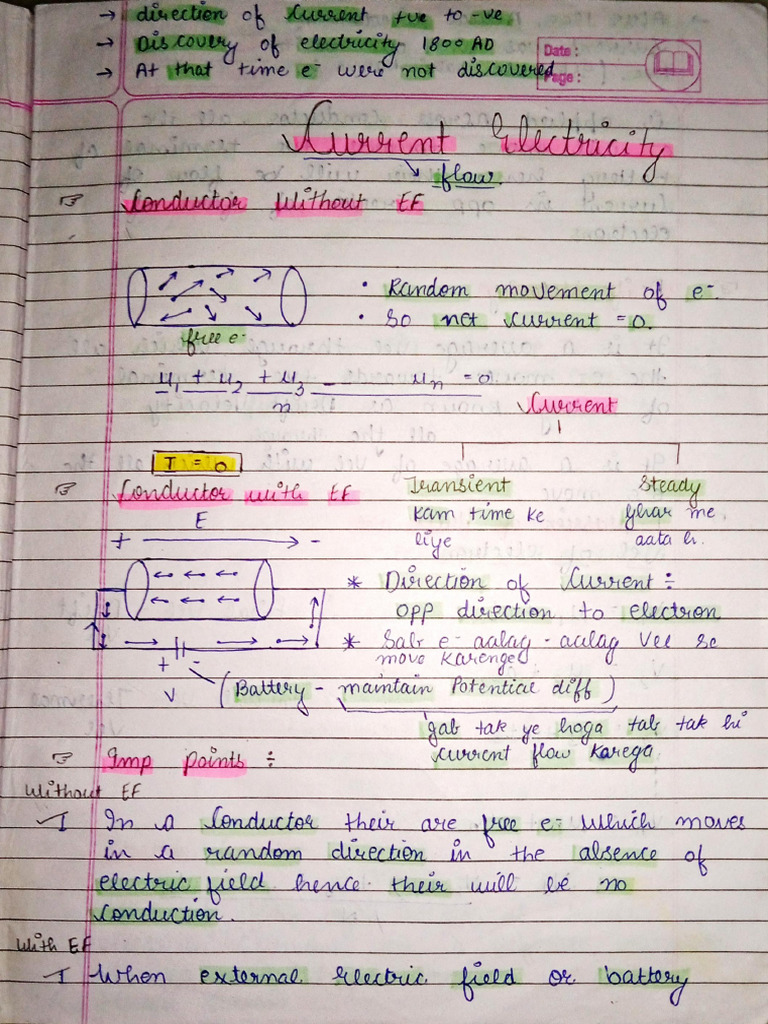 → direction of Current +ve to -ve
→ Discovery of electricity 1800 AD
→ At that time e- were not discovered
Date :
Page :
Current Electricity
flow.
Conductor Without EF
• Random movement of e-.
• So net current = 0.
free e-
u1 + u2 + u3 _ un = 0
n
Current
I = 0
Conductor with EF
Transient
Steady
kam time ke
ghar me
liye
aata h.
E
+ -
* Direction of Current ÷
opp direction to electron
* Sab e- aalag - aalag Vel se
move karenge
+ -
V
(Battery - maintain Potential diff)
jab tak ye hoga tab tak hi
current flow karega
Imp points ÷
Without EF
I In a Conductor their are free e- which moves
in a random direction in the absence of
electric field hence their will be no
conduction.
With EF
I When external Electric field or battery